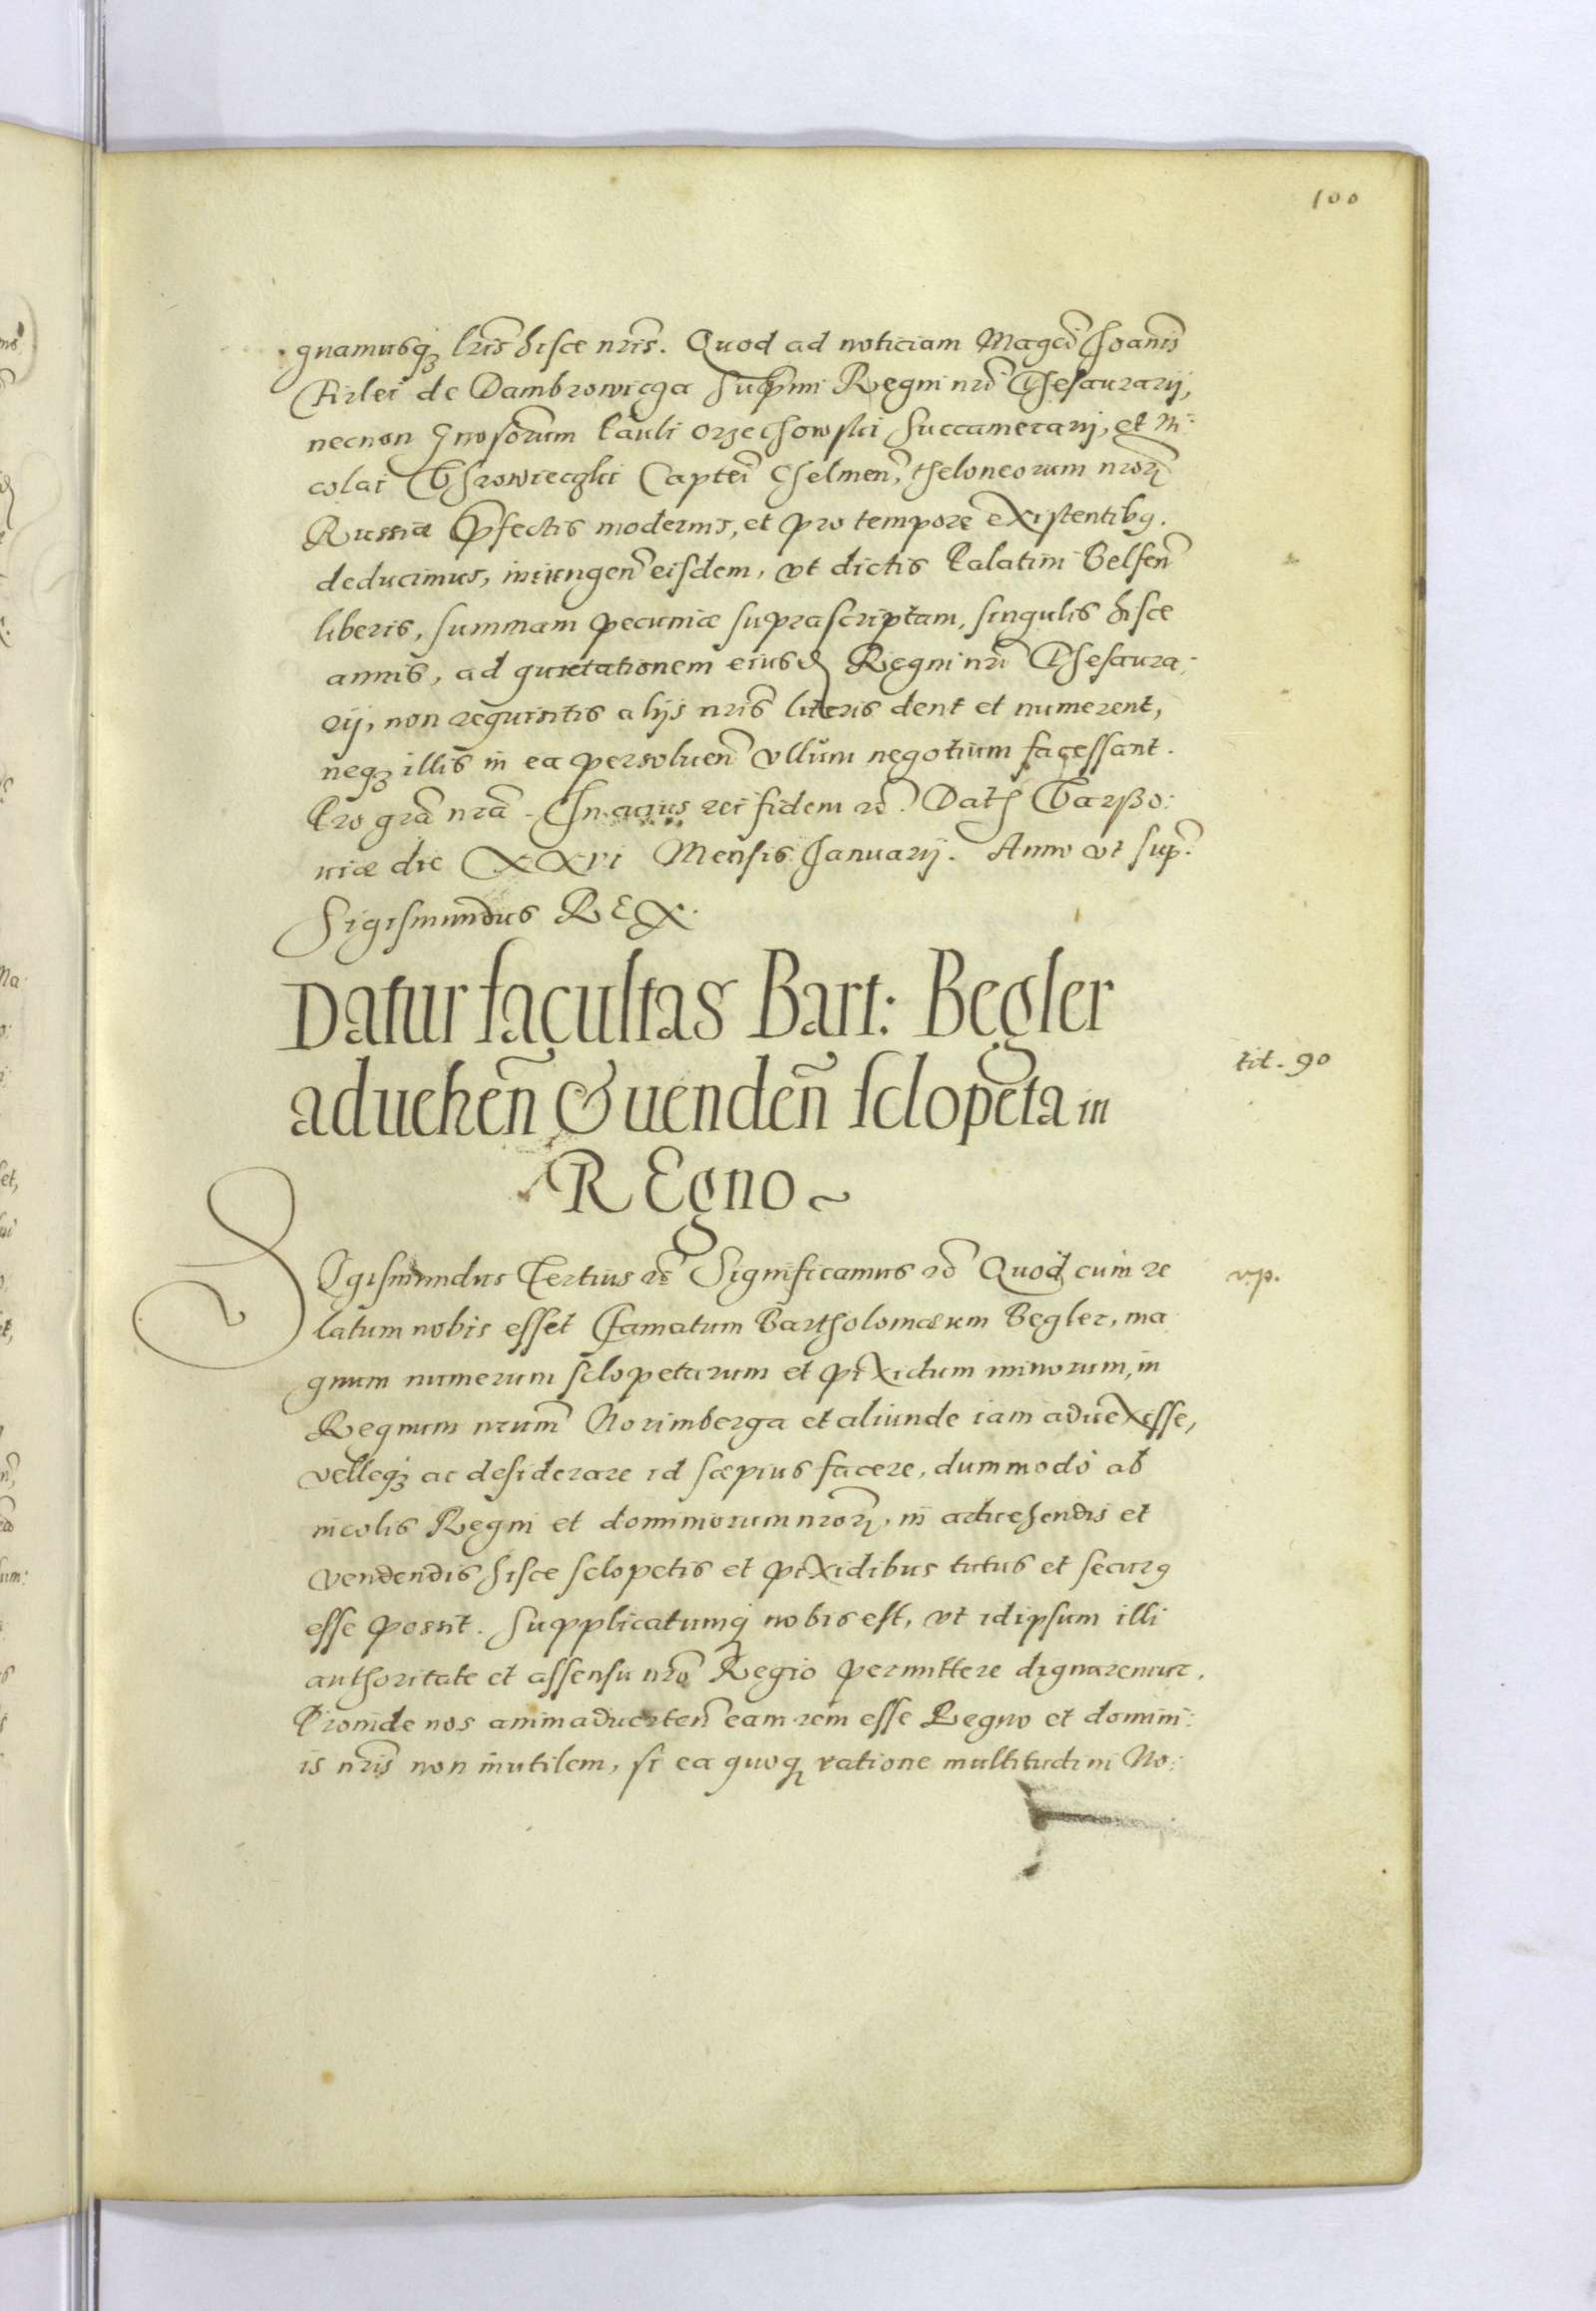 100
gnamusq₃ lr̃is hisce nr̃is. Quod ad noticiam Magc̃i Joanis̃
Firlei de Dambrowicza Sup̃mi Regni nrĩ Thesaurarij,
necnon Gnosorum̃ Pauli Orzechowski Succamerarij, et Ni:
colai Uhrowieczki Capteĩ Chelmeñ, theloneorum nrorꝝ̃
Russiæ p̃fectis modernis, et pro tempore existentibꝯ.
deducimus, iniungeñ eisdem, vt dictis Palatini Belseñ
liberis, summam pecuniæ suprascriptam, singulis hisce
annis, ad quietationem eiusd Regni nrĩ Thesaura:
rij, non requisitis alijs nris̃ literis dent et numerent,
neq₃ illis in ea persolueñ vllum negotium facessant.
Pro gr̃a nr̃a. In cuius rei fidem rc̃. Dat Varsso:
uiæ die XXVI Mensis Januarij. Anno vt sup̃.
Sigismundus REX.
Datur facultas Bart: Begler
aduehen̄ & uenden̄ sclopeta in
REgno ~
tit. 90
SIgismundus Tertius rc̃ Significamus rc̃ Quod cum re
v.p.
latum nobis esset Famatum Bartholomæum Begler, ma
gnum numerum sclopetarum et pixidum minorum, in
Regnum nrum̃ Norimberga et aliunde iam aduexisse,
velleq₃ ac desiderare id sæpius facere, dummodo ab
incolis Regni et dominiorum nrorꝝ̃, in aduehendis et
vendendis hisce sclopetis et pixidibus tutus et securꝯ
esse possit. Supplicatumq₃ nobis est, vt id ipsum illi
authoritate et assensu nrõ Regio permittere dignaremur.
Proinde nos animaduerteñ eam rem esse Regno et domini:
is nr̃is non inutilem, si ea quoq₃ ratione multitudini No: